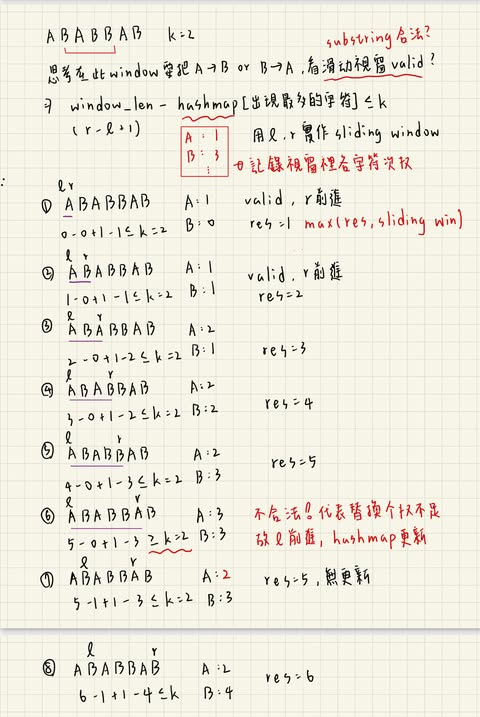 ABABBAB k=2
substring 合法?
思考在此window要把A→B or B→A,看滑动視窗valid?
⇒ window_len - hashmap[出現最多的字符] ≤ k
(r-l+1)
A:1
B:3
⋮
用l,r實作sliding window
記錄視窗裡各字符次数
:
l r
① ABABBAB A:1 valid, r前進
0-0+1-1≤k=2 B:0 res=1 max(res, sliding win)
l r
② ABABBAB A:1 valid, r前進
1-0+1-1≤k=2 B:1 res=2
l r
③ ABABBAB A:2
2-0+1-2≤k=2 B:1 res=3
l r
④ ABABBAB A:2
3-0+1-2≤k=2 B:2 res=4
l r
⑤ ABABBAB A:2
4-0+1-3≤k=2 B:3 res=5
l r
⑥ ABABBAB A:3 不合法!代表替換个数不足
5-0+1-3≥k=2 B:3 故l前進,hashmap更新
l r
⑦ ABABBAB A:2 res=5,無更新
5-1+1-3≤k=2 B:3
l r
⑧ ABABBAB A:2
6-1+1-4≤k B:4 res=6